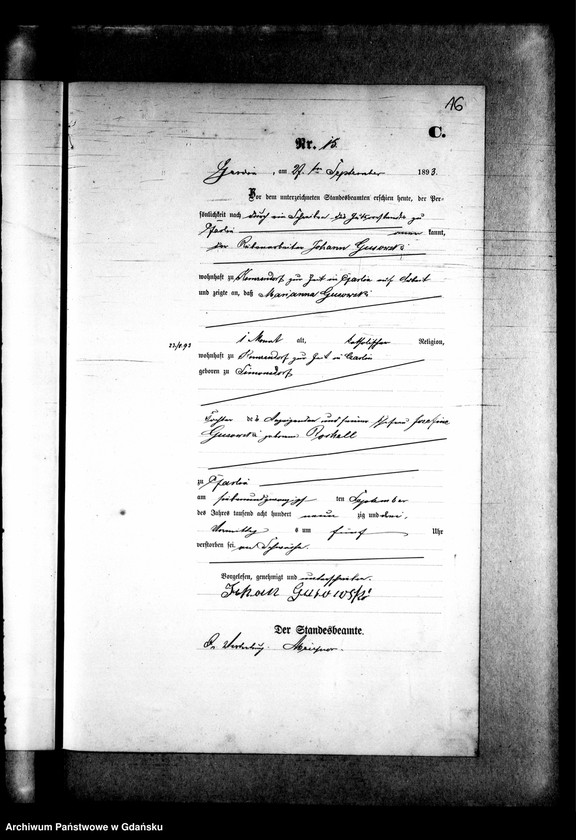 16
C.
Nr. 15.
am 27 ten September 1893.
Vor dem unterzeichneten Standesbeamten erschien heute, der Per-
sönlichkeit nach durch ein Schreiben des zu
kannt,
der Johann Gusowski
wohnhaft zu zur Zeit in auf Arbeit
und zeigte an, daß Marianna Gusowski
1 Monat alt, katholischer Religion,
wohnhaft zu zur Zeit in
geboren zu Simonsdorf
Tochter des Anzeigenden und seiner Ehefrau Josefine
Gusowski geborene
zu
am siebenundzwanzigsten September
des Jahres tausend acht hundert neun zig und drei,
Vormittag s um fünf Uhr
verstorben sei. an Schwäche.
Vorgelesen, genehmigt und unterschrieben.
Johan Gusowski
Der Standesbeamte.
In Vertretung.
Archiwum Państwowe w Gdańsku